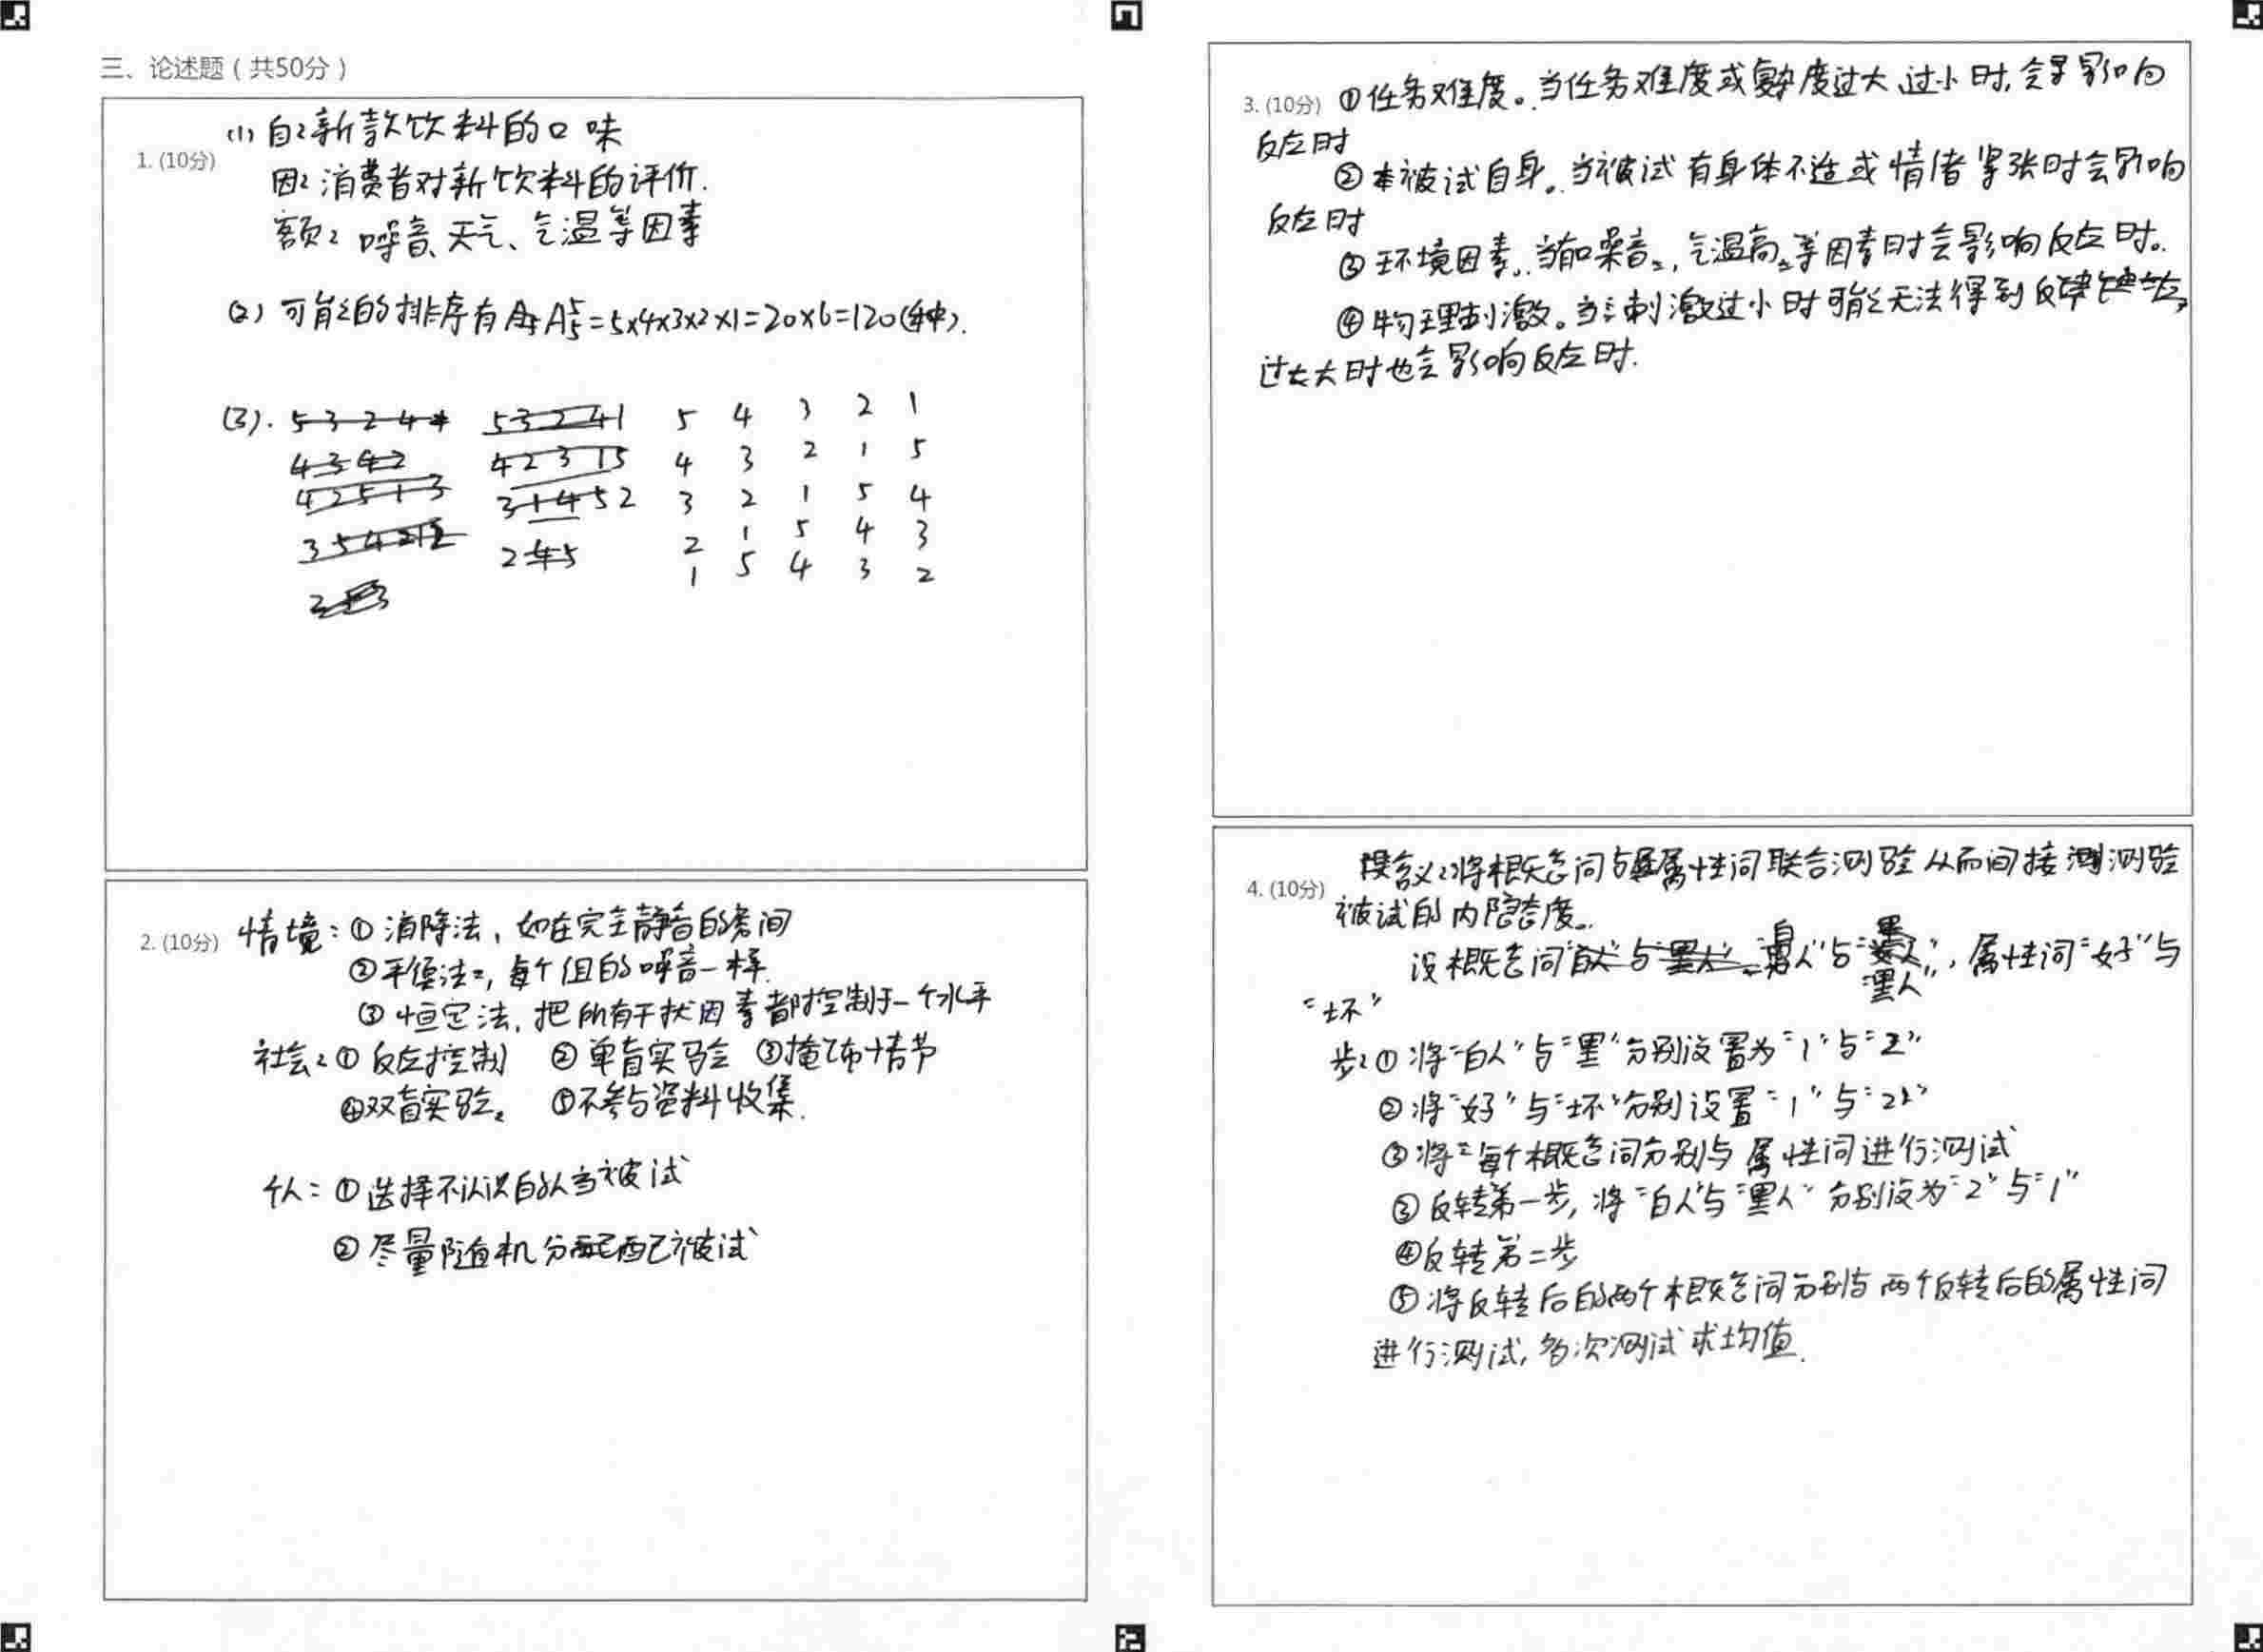 三、论述题（共50分）
1. (10分)
(1) 自：新款饮料的口味
因：消费者对新饮料的评价.
额：噪音、天气、气温等因素
(2) 可能的排序有 A⁵₅=5×4×3×2×1=20×6=120(种).
(3).
5 4 3 2 1
4 3 2 1 5
3 2 1 5 4
2 1 5 4 3
1 5 4 3 2
2. (10分)
情境：① 消除法，如在完全静音的房间
②平衡法：，每个组的噪音一样.
③恒定法，把所有干扰因素都控制于一个水平
社会：① 反应控制 ② 单盲实验 ③掩饰情节
④双盲实验。 ⑤不参与资料收集.
个人：① 选择不认识的人当被试
② 尽量随机分配被试
3. (10分) ①任务难度。当任务难度或复杂度过大、过小时，会影响
反应时
②被试自身。当被试有身体不适或情绪紧张时会影响
反应时
③ 环境因素。当如噪音，气温高等因素时会影响反应时。
④ 物理刺激。当刺激过小时可能无法得到反应，
过大时也会影响反应时.
4. (10分)
含义：将概念词与属性词联合测验从而间接测验
被试的内隐态度。
设概念词“白人”与“黑人”，属性词“好”与
“坏”
步：① 将“白人”与“黑”分别设置为“1”与“2”
② 将“好”与“坏”分别设置“1”与“2”
③ 将每个概念词分别与属性词进行测试
③ 反转第一步，将“白人”与“黑人”分别设为“2”与“1”
④反转第二步
⑤ 将反转后的两个概念词分别与两个反转后的属性词
进行测试，多次测试求均值.